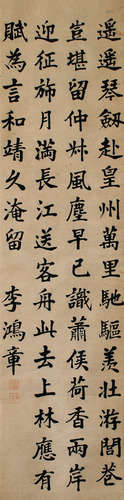 遥遥琴劒赴皇州萬里馳驅羨壯游閭巷
豈堪留仲蔚風塵早已識蕭侯荷香兩岸
迎征斾月滿長江送客舟此去上林應有
賦為言和靖久淹留 李鴻章